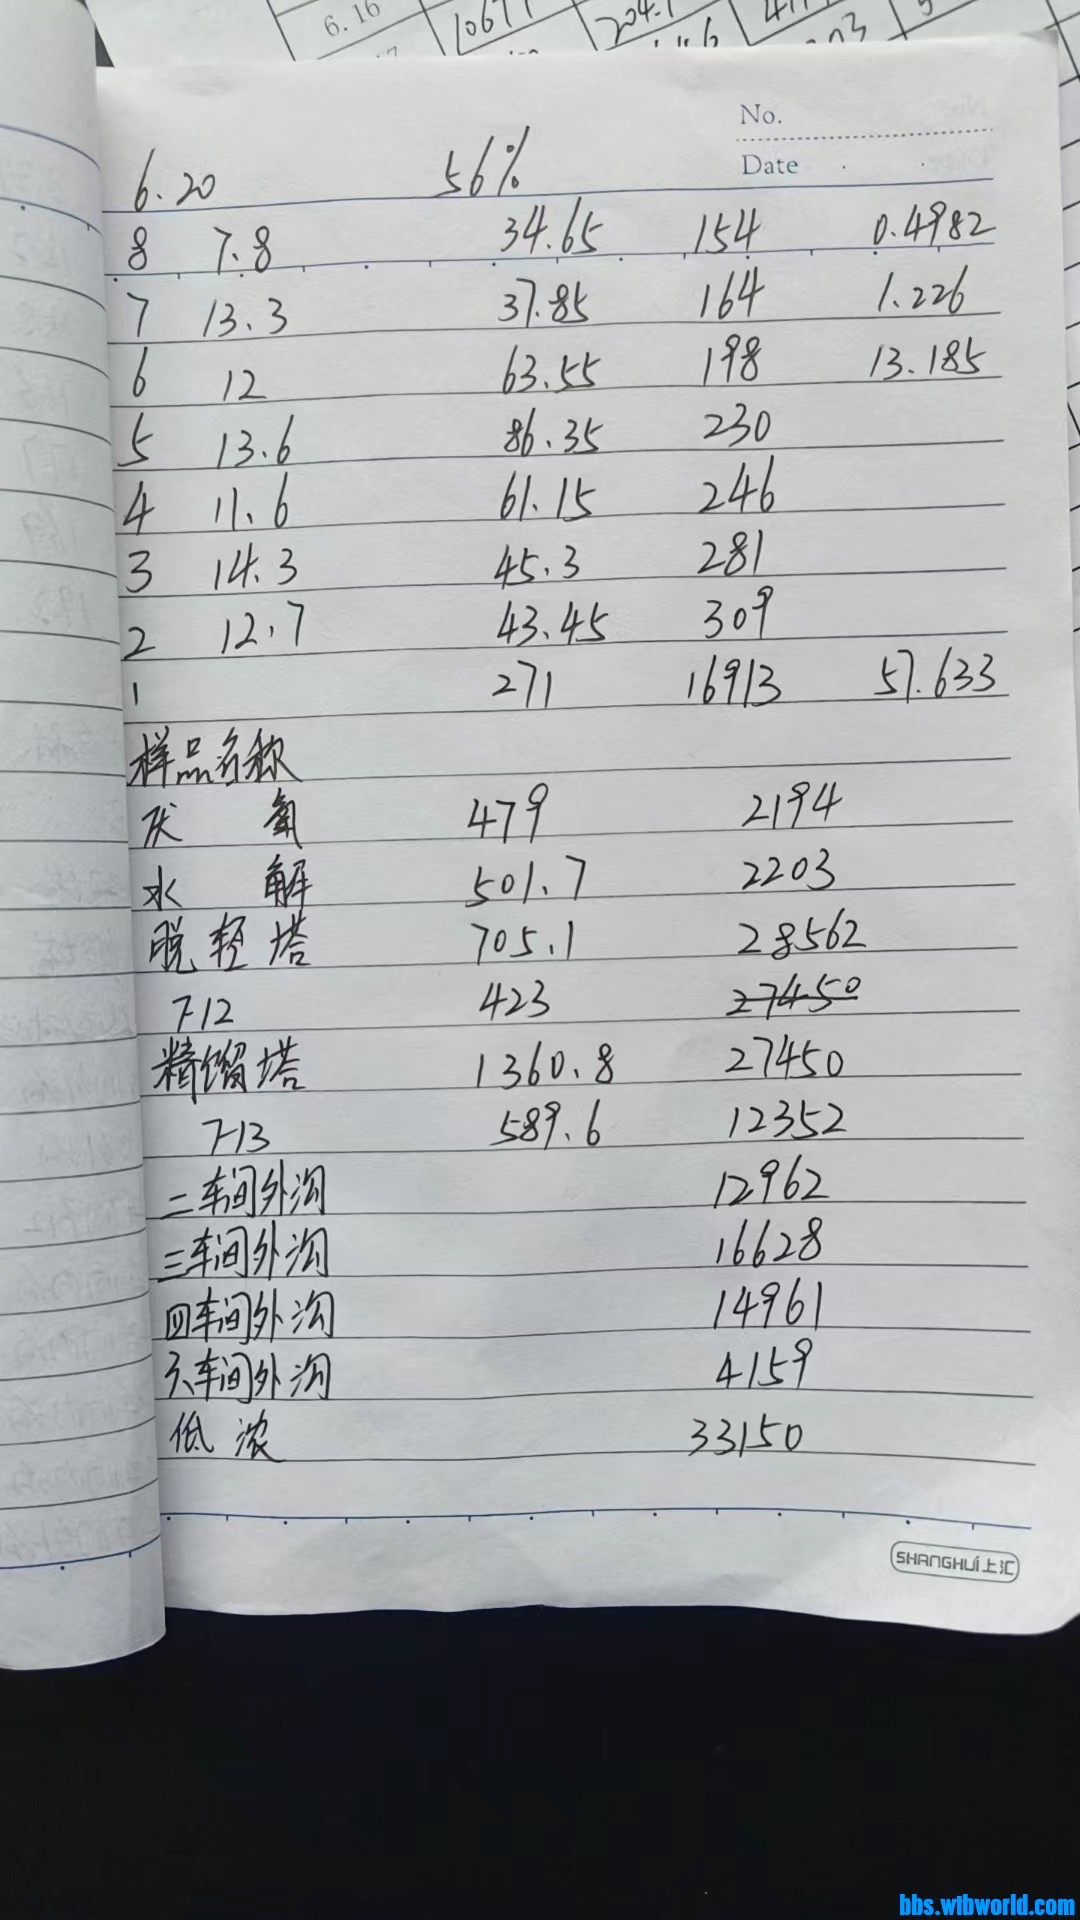 6.16 10677 204.1
No.
Date
6.20 56%
8 7.8 34.65 154 0.4982
7 13.3 37.85 164 1.226
6 12 63.55 198 13.185
5 13.6 86.35 230
4 11.6 61.15 246
3 14.3 45.3 281
2 12.7 43.45 309
1 271 16913 57.633
样品名称
厌 氧 479 2194
水 解 501.7 2203
脱轻塔 705.1 28562
7-12 423 27450
精馏塔 1360.8 27450
7-13 589.6 12352
二车间外沟 12962
三车间外沟 16628
四车间外沟 14961
六车间外沟 4159
低浓 33150
SHANGHUI上汇
bbs.wtbworld.com